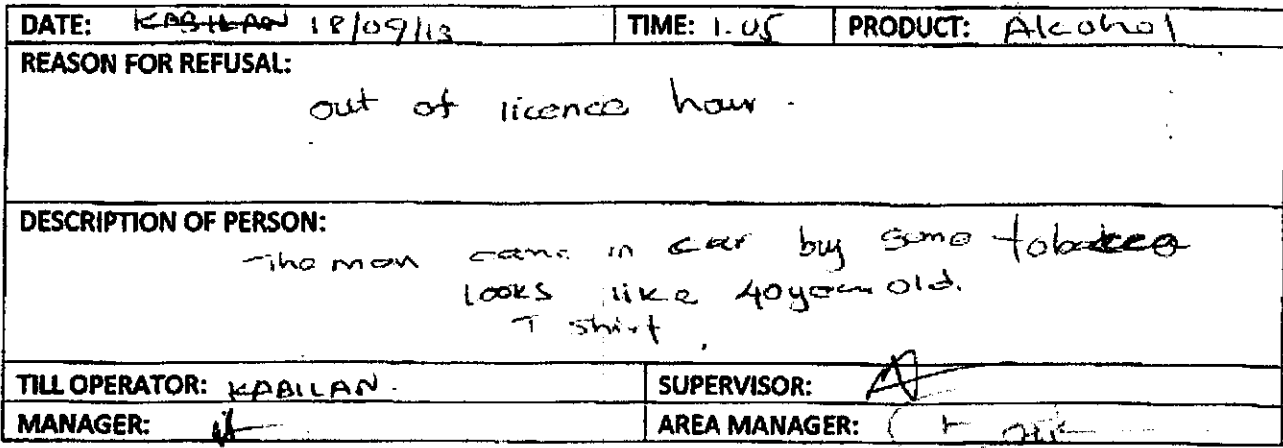 DATE: KABILAN 18/09/13 TIME: 1.05 PRODUCT: Alcohol
REASON FOR REFUSAL:
out of licence hour.
DESCRIPTION OF PERSON:
The man came in car buy some tobacco
looks like 40 year old.
T shirt.
TILL OPERATOR: KABILAN. SUPERVISOR:
MANAGER: AREA MANAGER: